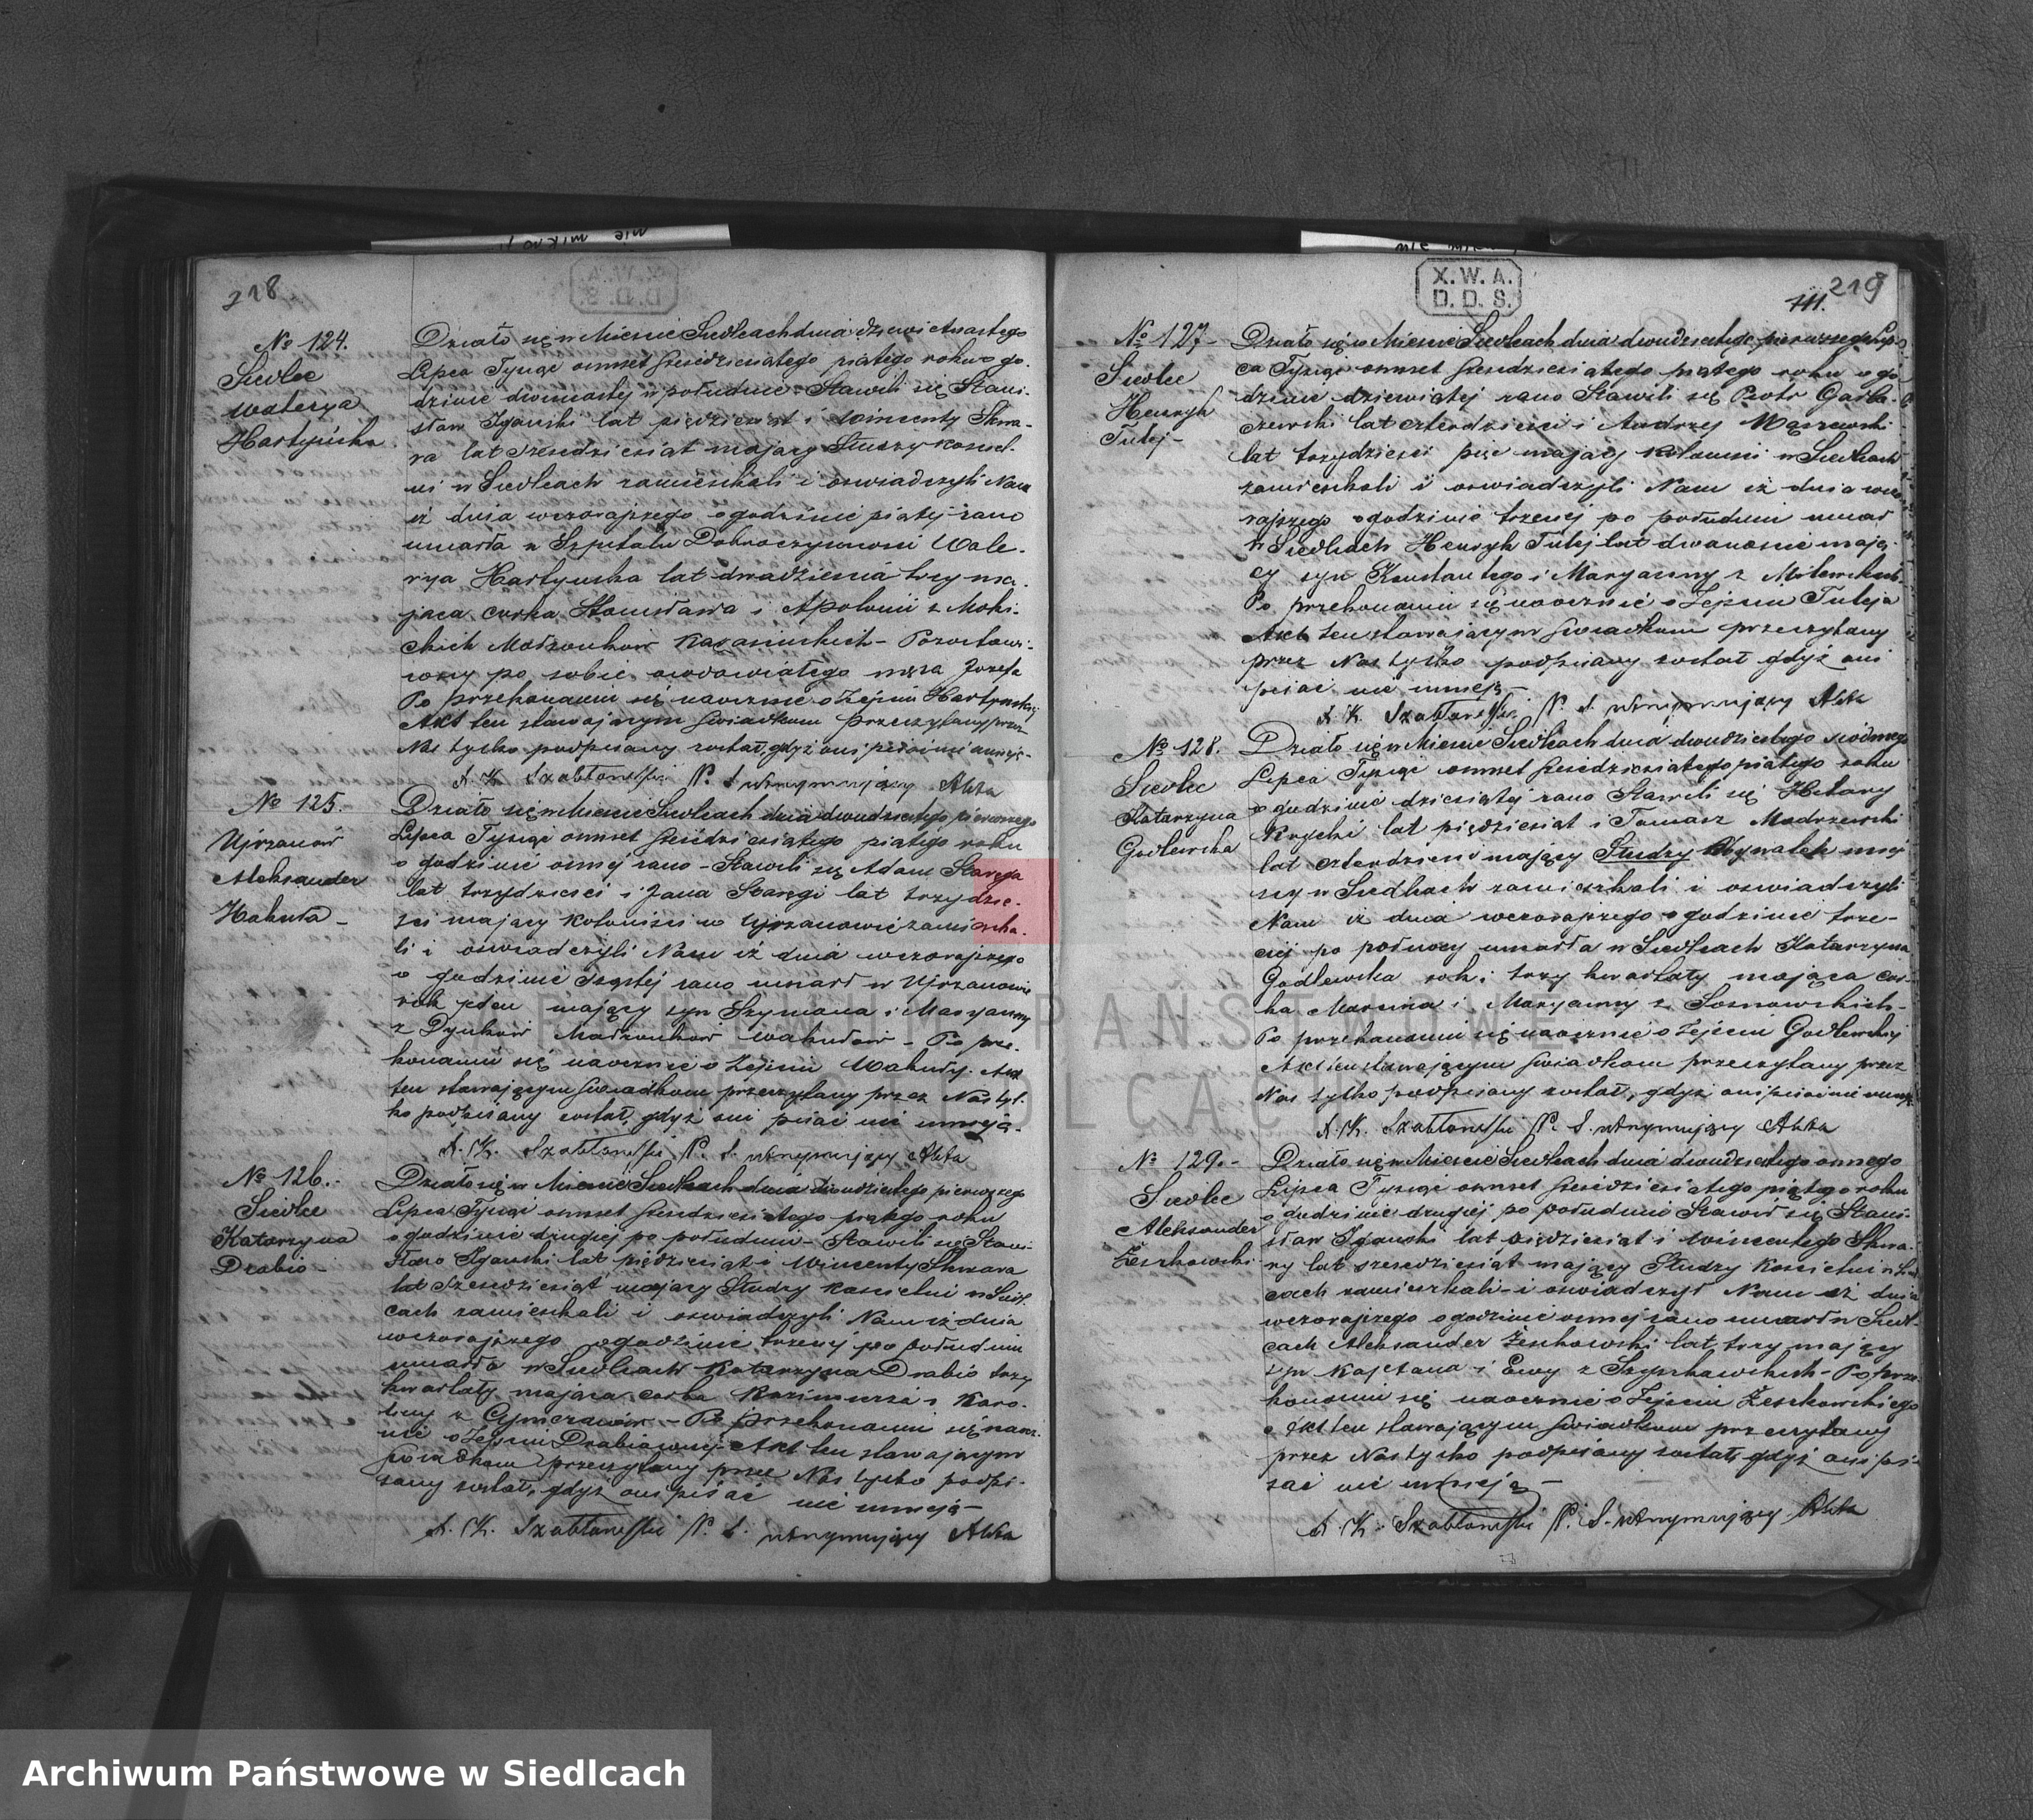 218
№ 124.
Siedlce
Walerya
Hartyńska
Działo się w Mieście Siedlcach dnia dziewiętnastego
Lipca Tysiąc ośmset sześdziesiątego piątego roku o go-
dzinie dwunastej w południe – Stawili się Stani-
sław Iganski lat pięćdziesiąt i Wincenty Skwa-
ra lat sześdziesiąt mający Słudzy Kościel-
ni w Siedlcach zamieszkali i oswiadczyli Nam
iż dnia wczorajszego o godzinie piątej rano
umarła w Szpitalu Dobroczynności Wale-
rya Hartyńska lat dwadzieścia trzy ma-
jąca córka Stanisława i Apolonii z
Małżonków – Pozostawi-
wszy po sobie owdowiałego męża Józefa
Po przekonaniu się naocznie o Zejściu Hartyńskiej
Akt ten stawającym Świadkom przeczytany przez
Nas tylko podpisany został, gdyż oni pisać nie umieją –
X. K. Szabłowski P. S. utrzymujący Akta
№ 125.
Ujrzanów
Aleksander
Wakuła –
Działo się w Mieście Siedlcach dnia dwudziestego pierwszego
Lipca Tysiąc ośmset sześdziesiątego piątego roku
o godzinie ósmej rano – Stawili się Adam Staręga
lat trzydzieści i Jana Staręgi lat trzydzie-
ści mający Koloniści w Ujrzanowie zamieszka-
li i oswiadczyli Nam iż dnia wczorajszego
o godzinie szóstej rano umarł w Ujrzanowie
rok jeden mający syn Szymana i Maryanny
z Dynków Małżonków Wakułów – Po prze-
konaniu się naocznie o Zejściu Wakuły. Akt
ten stawającym Świadkom przeczytany przez Nas tyl-
ko podpisany został, gdyż oni pisać nie umieją –
X. K. Szabłowski P. S. utrzymujący Akta
№ 126. –
Siedlce
Katarzyna
Drabio –
Działo się w Mieście Siedlcach dnia dwudziestego pierwszego
Lipca Tysiąc ośmset sześdziesiątego piątego roku
o godzinie drugiej po południu – Stawili się Stani-
sław Iganski lat pięćdziesiąt i Wincenty Skwara
lat sześdziesiąt mający Słudzy Kościelni w Siedl-
cach zamieszkali i oswiadczyli Nam iż dnia
wczorajszego o godzinie trzeciej po południu
umarła w Siedlcach Katarzyna Drabio trzy
kwartały mająca córka Kazimierza i Karo-
liny z – Po przekonaniu się naocz-
nie o Zejściu Drabiównej – Akt ten stawającym
Świadkom przeczytany przez Nas tylko podpi-
sany został, gdyż oni pisać nie umieją –
X. K. Szabłowski P. S. utrzymujący Akta
X. W. A.
D. D. S.
219
111.
№ 127 –
Siedlce
Henryk
Tulej –
Działo się w Mieście Siedlcach dnia dwudziestego pierwszego Lip-
ca Tysiąc ośmset sześdziesiątego piątego roku o go-
dzinie dziewiątej rano Stawili się Piotr
lat czterdzieści i Andrzej Wąsowski
lat trzydzieści pięć mający Koloniści w Siedlcach
zamieszkali i oswiadczyli Nam iż dnia wczo-
rajszego o godzinie trzeciej po południu umarł
w Siedlcach Henryk Tulej lat dwanaście mają-
cy syn Konstantego i Maryanny z Milewskich –
Po przekonaniu się naocznie o Zejściu Tuleja
Akt ten stawającym Świadkom przeczytany
przez Nas tylko podpisany został gdyż oni
pisać nie umieją –
X. K. Szabłowski P. S. utrzymujący Akta
№ 128.
Siedlce
Katarzyna
Godlewska
Działo się w Mieście Siedlcach dnia dwudziestego siódmego
Lipca Tysiąc ośmset sześdziesiątego piątego roku
o godzinie dziesiątej rano Stawili się Hilary
Krycki lat pięćdziesiąt i Tomasz Modrzewski
lat czterdzieści mający Słudzy Obywatele miej-
scy w Siedlcach zamieszkali i oswiadczyli
Nam iż dnia wczorajszego o godzinie trze-
ciej po północy umarła w Siedlcach Katarzyna
Godlewska rok i trzy kwartały mająca cór-
ka Marcina i Maryanny z Sosnowskich –
Po przekonaniu się naocznie o Zejściu Godlewskiej
Akt ten stawającym Świadkom przeczytany przez
Nas tylko podpisany został, gdyż oni pisać nie umieją.
X. K. Szabłowski P. S. utrzymujący Akta
№ 129. –
Siedlce
Aleksander
Żeszkowski
Działo się w Mieście Siedlcach dnia dwudziestego ósmego
Lipca Tysiąc ośmset sześdziesiątego piątego roku
o godzinie drugiej po południu Stawił się Stani-
sław Iganski lat pięćdziesiąt i Wincentego Skwa-
ry lat sześdziesiąt mający Słudzy Kościelni w Siedl-
cach zamieszkali – i oswiadczył Nam iż dnia
wczorajszego o godzinie ósmej rano umarł w Siedl-
cach Aleksander Żeszkowski lat trzy mający
syn Kajetana i Ewy z Szyszkowskich – Po prze-
konaniu się naocznie o Zejściu Żeszkowskiego
Akt ten stawającym Świadkom przeczytany
przez Nas tylko podpisany został, gdyż oni pi-
sać nie umieją –
X. K. Szabłowski P. S. utrzymujący Akta
Archiwum Państwowe w Siedlcach